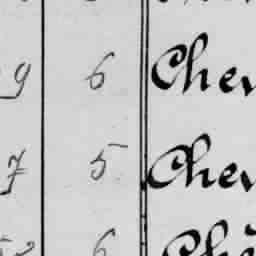 9 6 Chev
7 5 Chev
6 Che